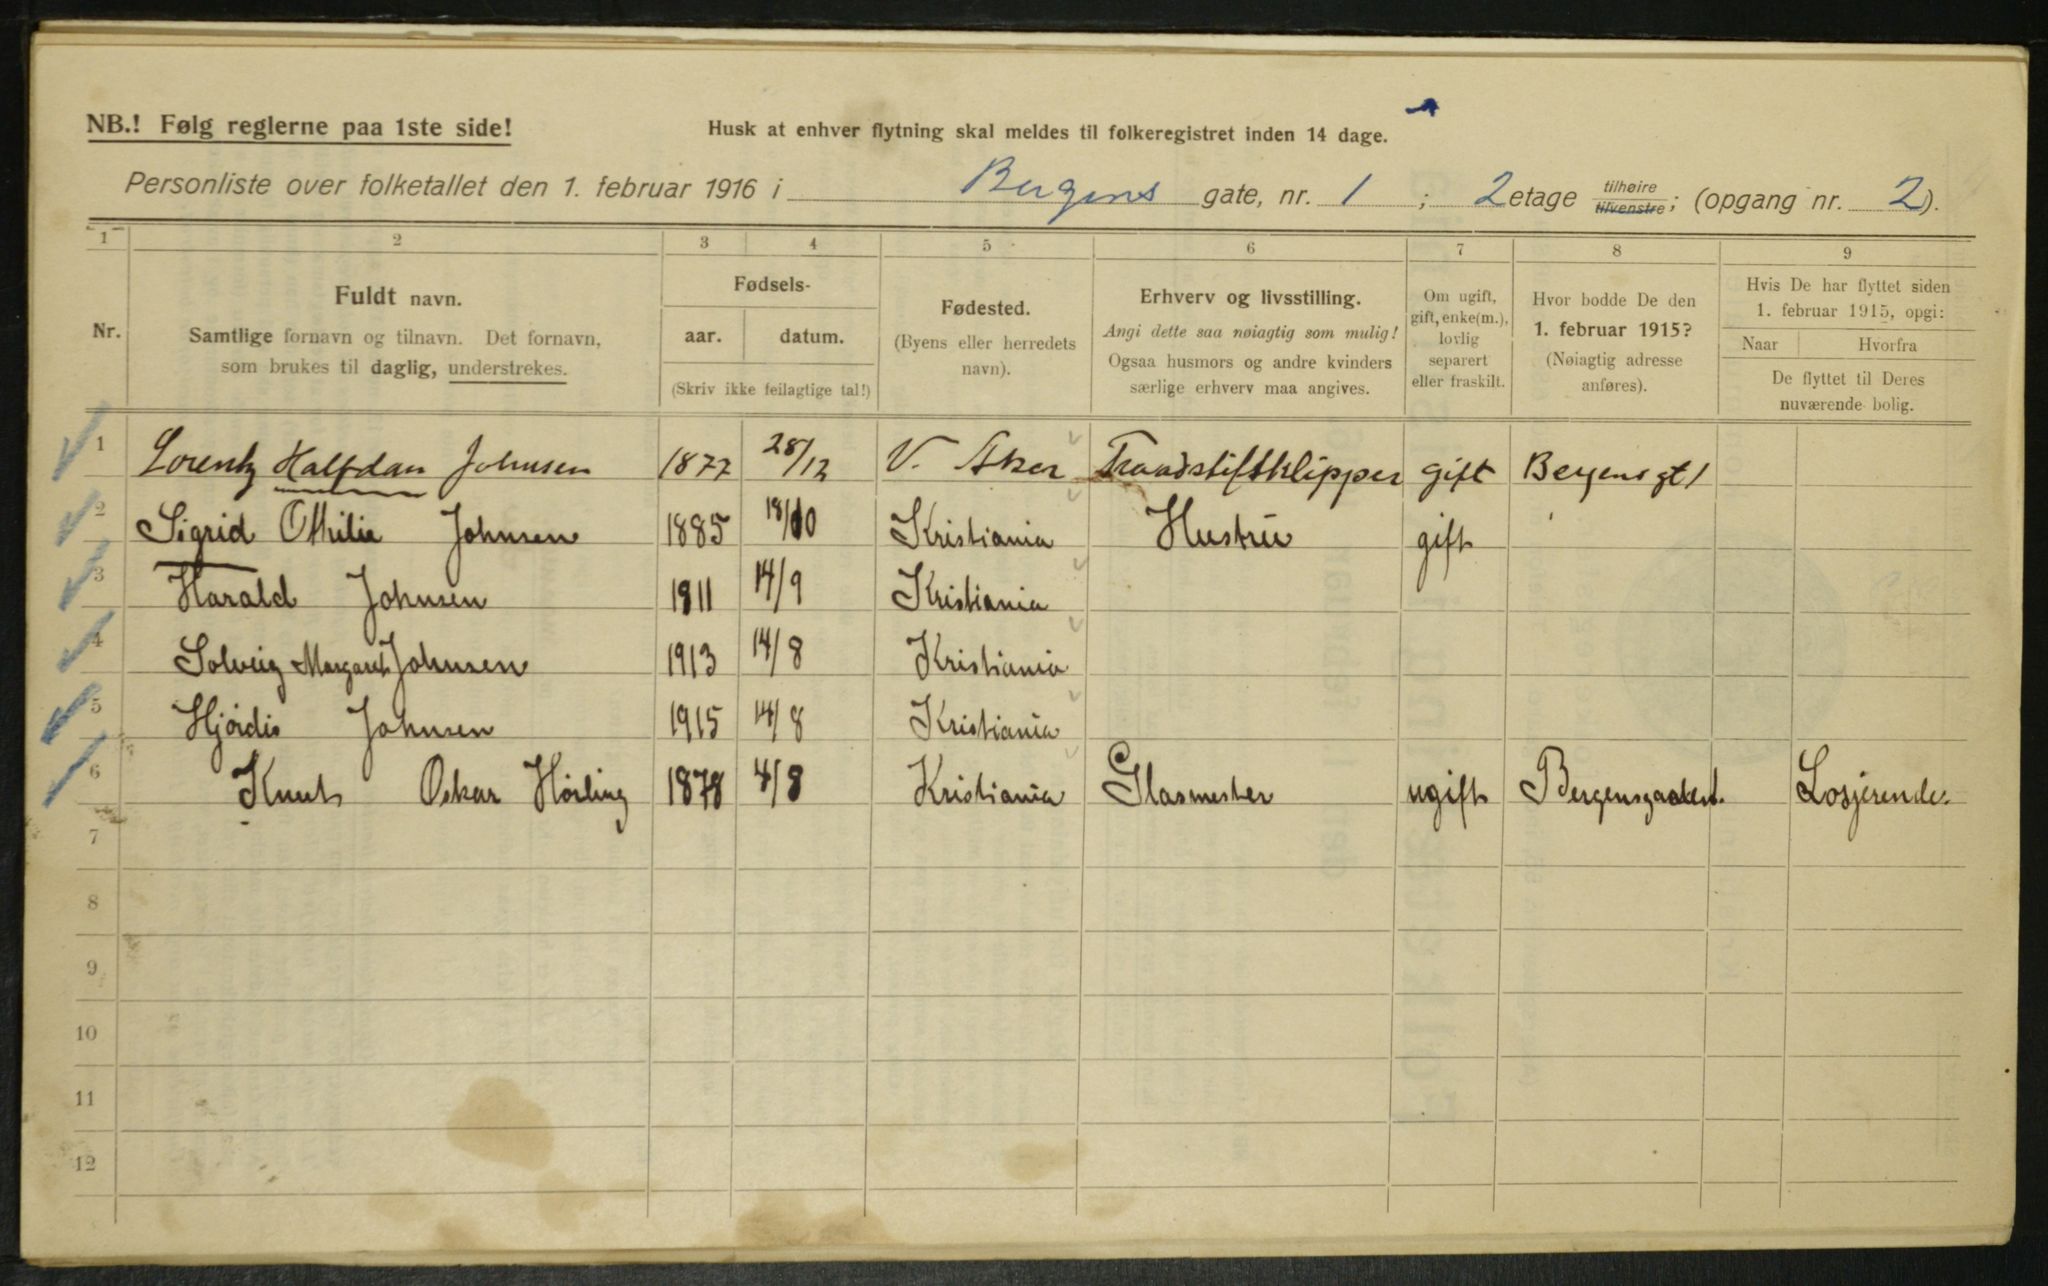 NB.! Følg reglerne paa 1ste side!
Husk at enhver flytning skal meldes til folkeregistret inden 14 dage.
Personliste over folketallet den 1. februar 1916 i Bergens gate, nr. 1 ; 2 etage tilhøire tilvenstre; (opgang nr. 2).
1 2 3 4 5 6 7 8 9
Nr.
Fuldt navn.
Samtlige fornavn og tilnavn. Det fornavn,
som brukes til daglig, understrekes.
Fødsels-
aar. datum.
(Skriv ikke feilagtige tal!)
Fødested.
(Byens eller herredets
navn).
Erhverv og livsstilling.
Angi dette saa nøiagtig som mulig!
Ogsaa husmors og andre kvinders
særlige erhverv maa angives.
Om ugift,
gift, enke(m.),
lovlig
separert
eller fraskilt.
Hvor bodde De den
1. februar 1915?
(Nøiagtig adresse
anføres).
Hvis De har flyttet siden
1. februar 1915, opgi:
Naar Hvorfra
De flyttet til Deres
nuværende bolig.
1 Lorentz Halfdan Johnsen 1877 28/12 V. Aker Traadstiftklipper gift Bergens gt 1
2 Sigrid Othilie Johnsen 1885 18/10 Kristiania Hustru gift
3 Harald Johnsen 1911 14/9 Kristiania
4 Solveig Margaret Johnsen 1913 14/8 Kristiania
5 Hjördis Johnsen 1915 14/8 Kristiania
6 Knut Oskar Hörling 1878 4/8 Kristiania Glasmester ugift Bergensgaten 1. Losjerende.
7
8
9
10
11
12